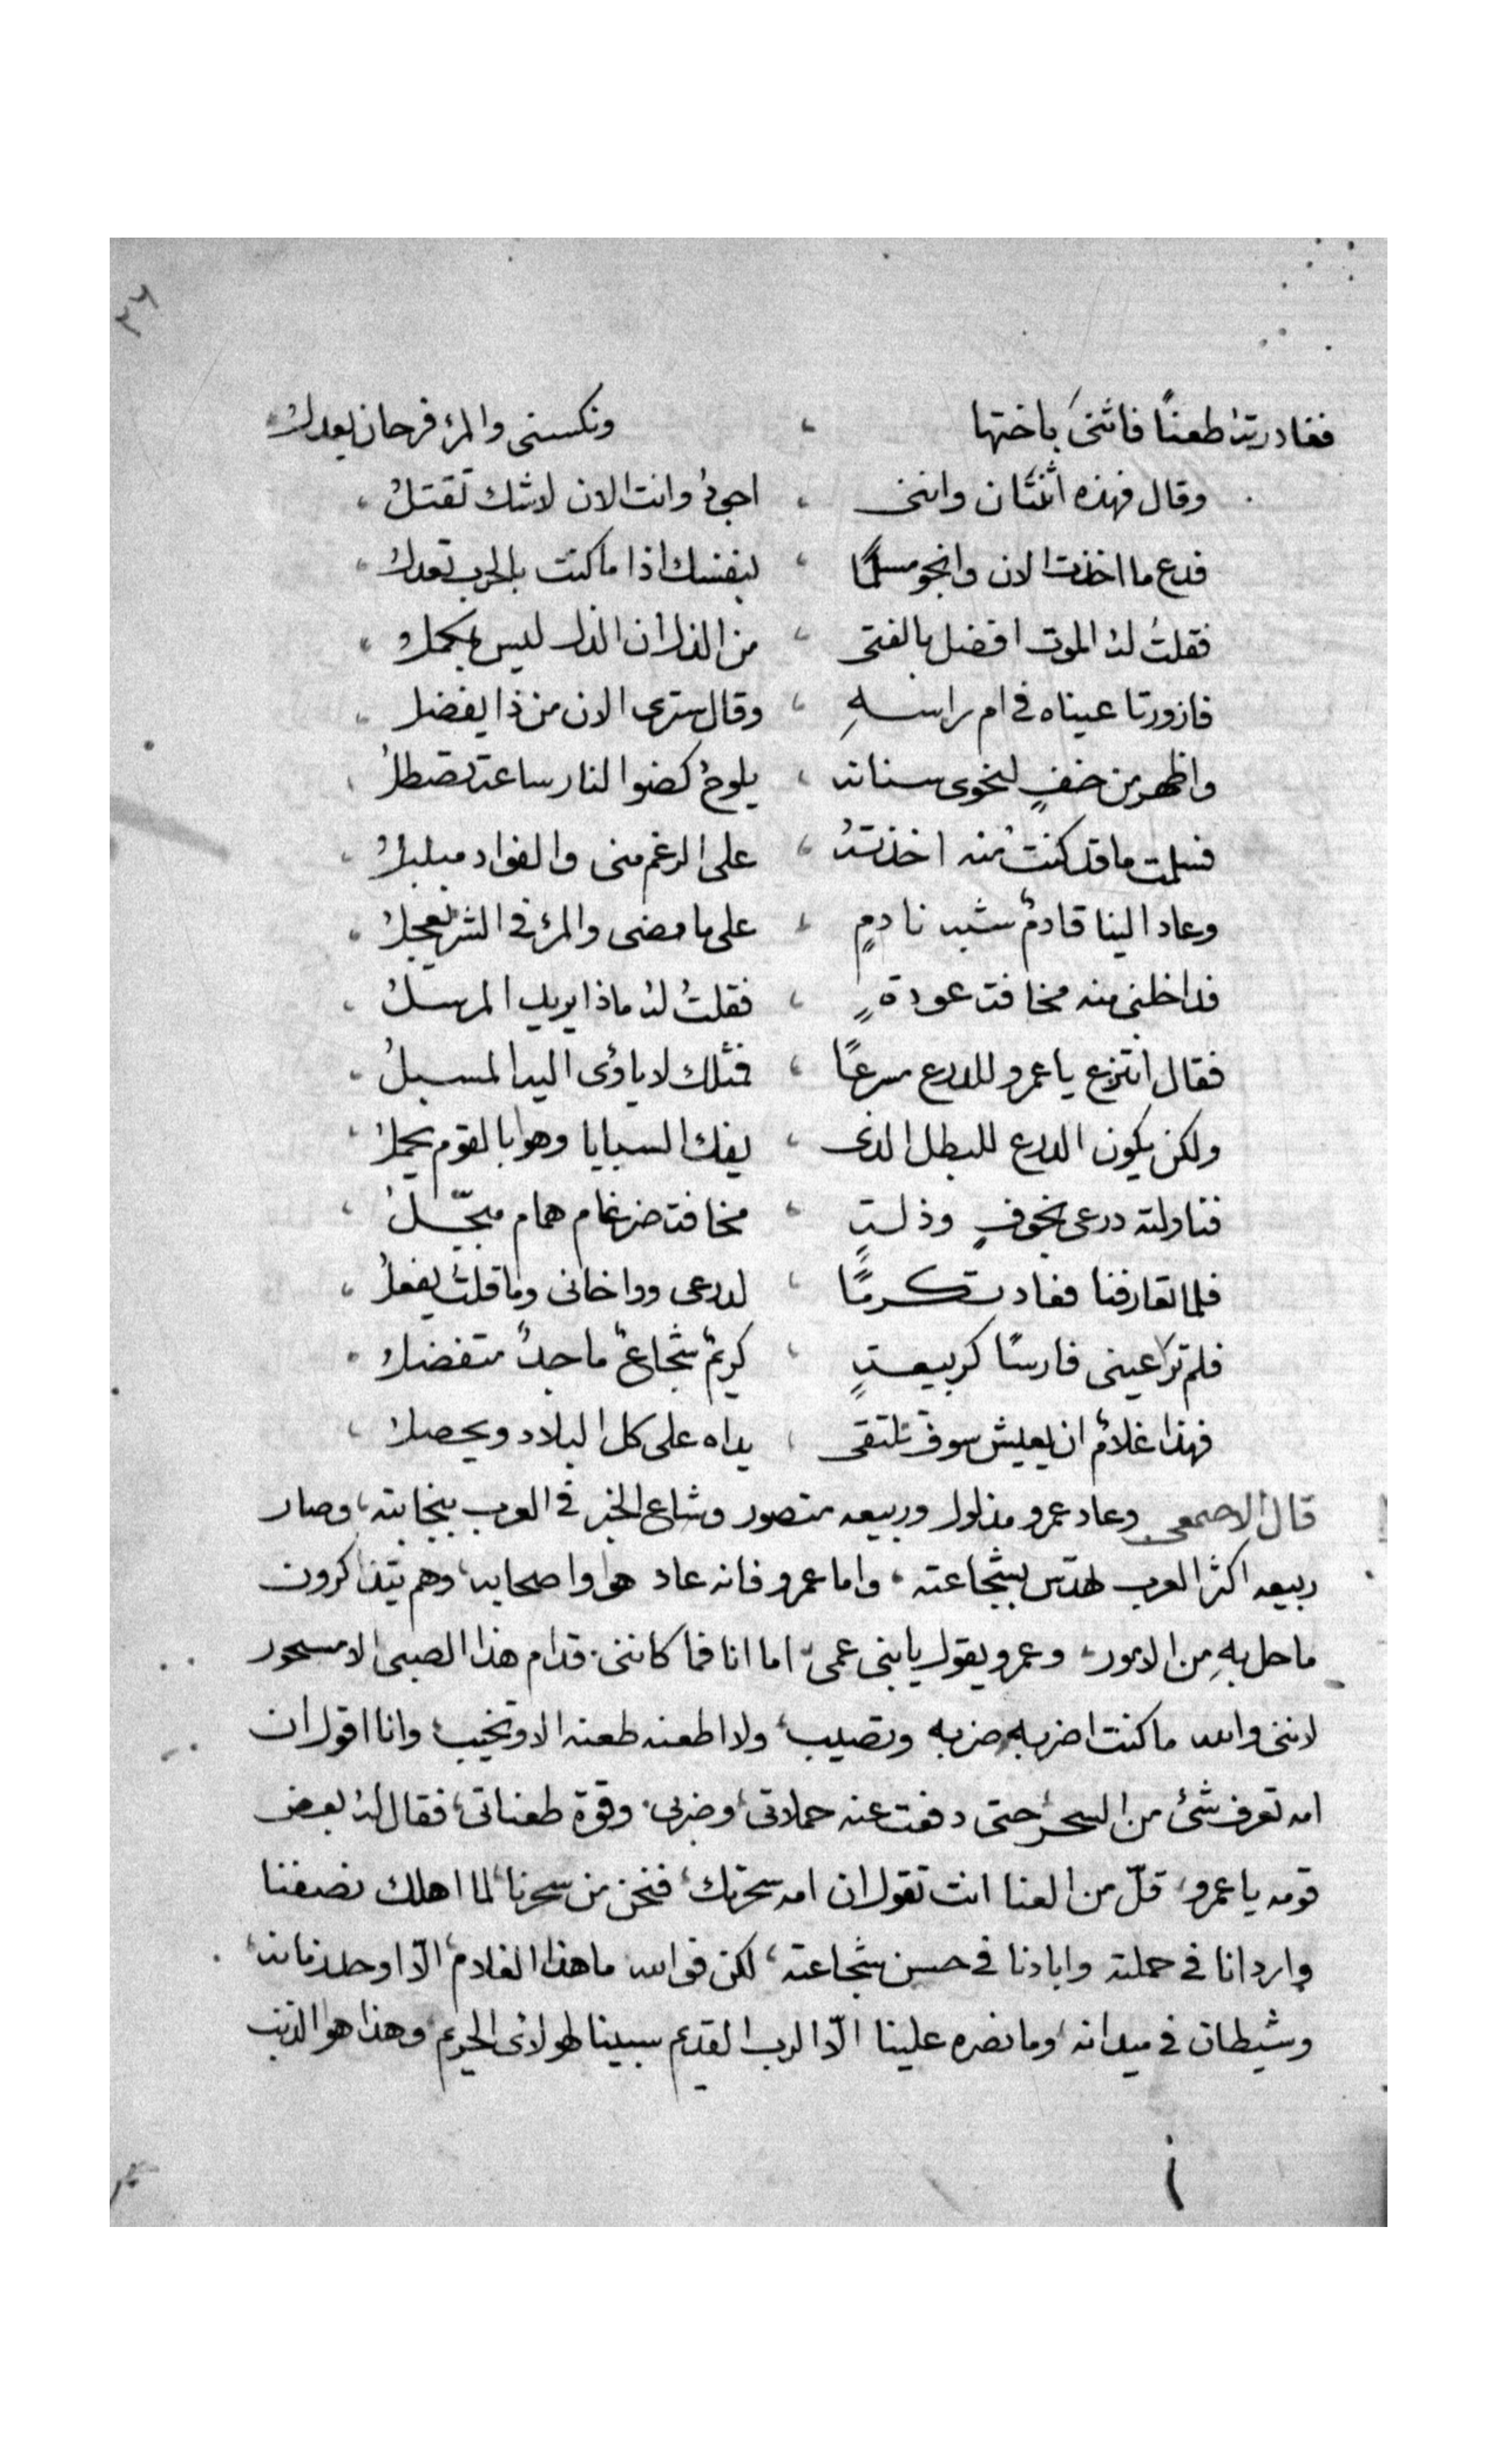 ٣٦
فغادرته طعنًا فاثنى باختها ، ونكسنى والمرؤ فرحان يعدلُ
وقال فهذه اثنتان واننى ، اجىُ وانت الان لاشك تقتلُ ،
فدع ما اخذت الان وانجو مسلمًا ، لنفسك اذا ما كنت بالحرب تعدلُ ،
فقلتُ لهُ الموت افضل بالفتى ، من الذل ان الذل ليس يحملُ ،
فازورتا عيناه فى ام راسهِ ، وقال سترى الان من ذا يفضل ،
واظهر من خففٍ لنحوى سنانه ، يلوحُ كضوا النار ساعة تصطلُ
فسلمت ما قد كنتُ منه اخذتهُ ، على الرغم منى والفواد مبلبلُ ،
وعاد الينا قادمٌ شبه نادمٍ ، على ما مضى والمرؤ فى الشر يعجلُ ،
فداخلنى منه مخافت عودةٍ ، فقلتُ لهُ ماذا يريد المرسلُ ،
فقال انتزع يا عمرو للدرع سرعًا ، فمثلك لا ياوى اليه المسبلُ ،
ولكن يكون الدرع للبطل الذى ، يفك السبايا وهوا بالقوم يحملُ ،
فناولته درعى بخوفٍ وذلتٍ ، مخافت ضرغام همام مبجّلُ ،
فلما تعارفنا فعاد تكرمًا ، لدرعى وواخانى وما قلتُ يفعلُ ،
فلم ترَ عينى فارسًا كربيعتٍ ، كريمٌ شجاعٌ ماجدٌ متفضلُ ،
فهذا غلامٌ ان يعيش سوف تلتقى ، يداه على كل البلاد ويحصلُ ،
قال الاصمعى وعاد عمرو مذلول وربيعه منصور وشاع الخبر فى العرب بنجابته، وصار
ربيعه اكثر العرب بشجاعته ، واما عمرو فانه عاد هوا واصحابه، وهم يتذاكرون
ما حل بهِ من الامور، وعمرو يقول يابنى عمى، اما انا فما كاننى قدام هذا الصبى الا مسحور
لاننى والله ما كنت اضربه ضربه وتصيب، ولا اطعنه طعنه الا وتخيب، وانا اقول ان
امه تعرف شئ من السحر، حتى دفعت عنه حملاتى، وضربى، وقوة طعناتى، فقال لهُ بعض
قومه يا عمرو، قلّ من العنا انت تقول ان امه سحرتك، فنحن من سحرنا، لما اهلك نصفنا
واردانا فى حملته وابادنا فى حسن شجاعته، لكن فوالله ما هذا الغلام، الّا اوحد زمانه،
وشيطان فى ميدانه، وما نصره علينا الّا الرب القديم سبينا لهولائ الحريم، وهذا هوا الذنب